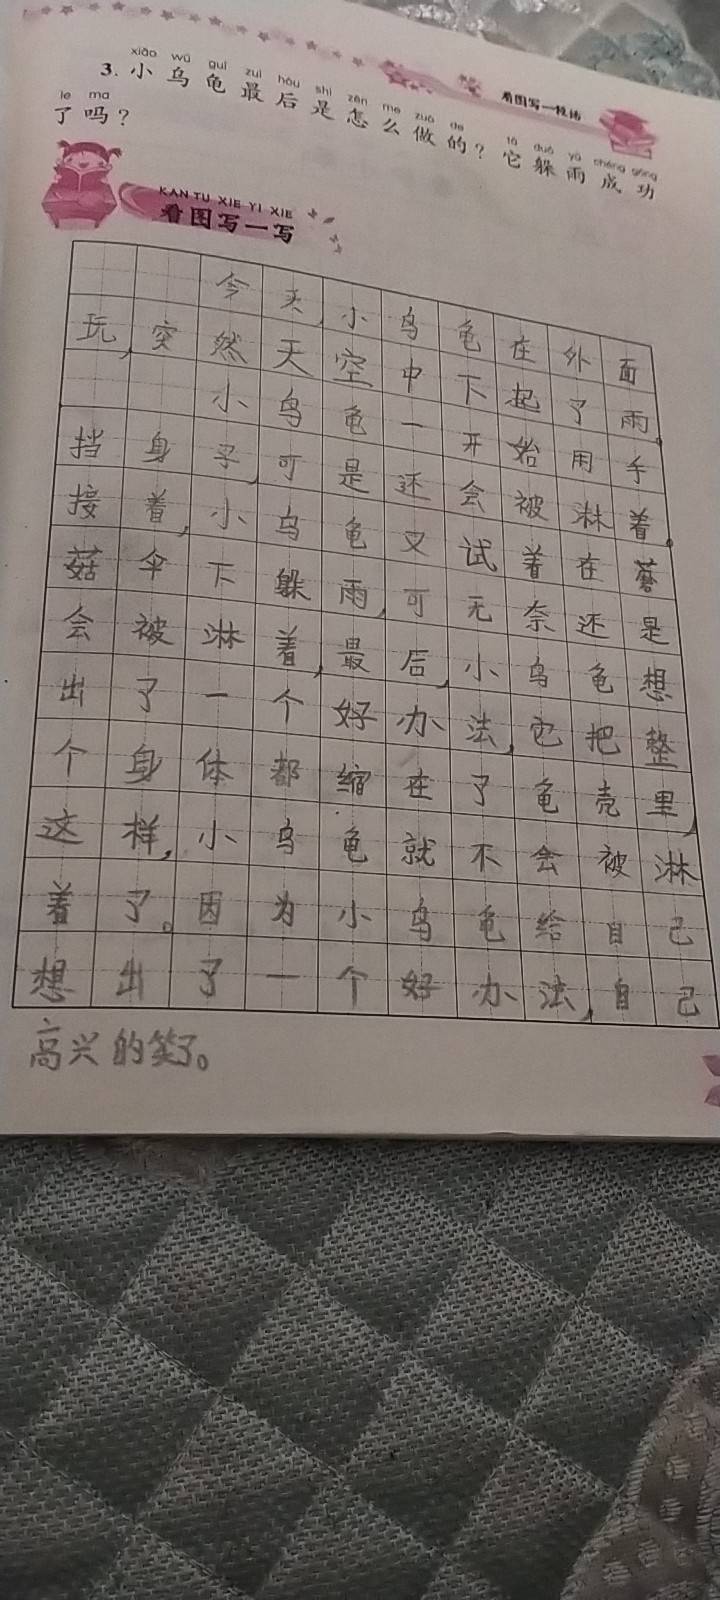 看图写一段话
xiǎo wū guī zuì hòu shì zěn me zuò de tā duǒ yǔ chéng gōng
3. 小乌龟最后是怎么做的？它躲雨成功
le ma
了吗？
KAN TU XIE YI XIE
看图写一写
今天,小乌龟在外面
玩,突然天空中下起了雨。
小乌龟一开始用手
挡身子,可是还会被淋着。
接着,小乌龟又试着在蘑
菇伞下躲雨,可无奈还是
会被淋着,最后,小乌龟想
出了一个好办法,它把整
个身体都缩在了龟壳里,
这样,小乌龟就不会被淋
着了。因为小乌龟给自己
想出了一个好办法,自己
高兴的笑了。